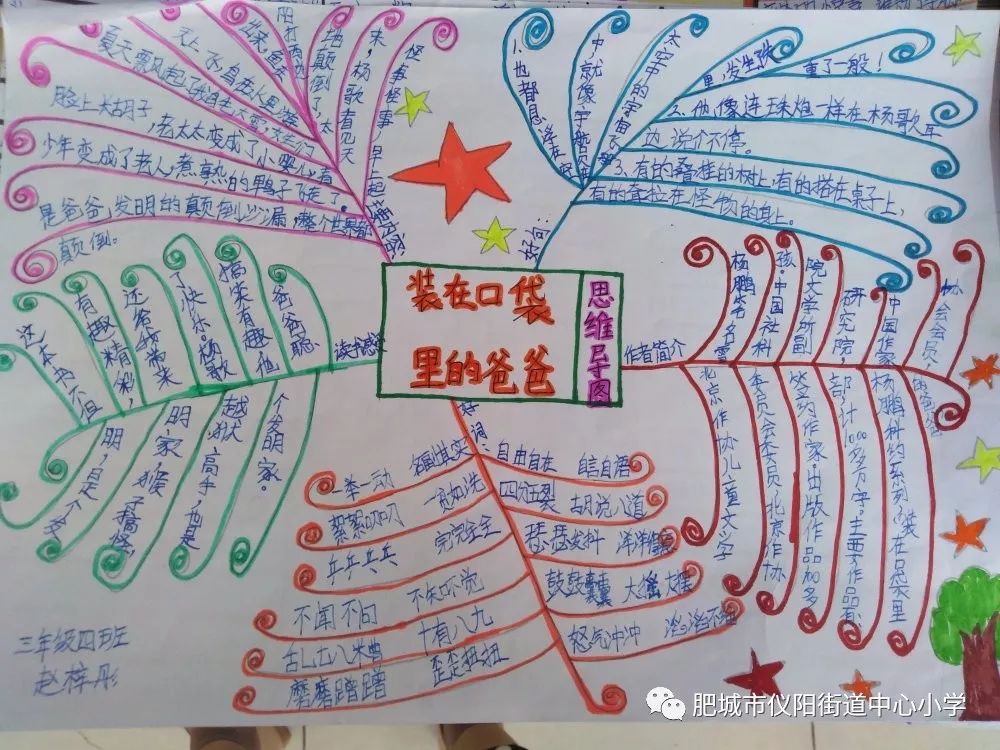 装在口袋
里的爸爸
思维导图
怪事怪事
早上起
来,杨歌看见天
地颠倒了,太
阳打西边
出来,鱼
夏天飘起了
脸上长胡子
老太太变成了小婴儿
少年变成了老人,煮熟的鸭子飞走了。
是爸爸,发明的颠倒沙漏,整个世界都
颠倒。
好句:
1、也都悬浮在
中,就像宇航员在
太空中的宇宙
里,发生
重了一般!
2、他像连珠炮一样在杨歌耳
边说个不停。
3、有的叠挂的树上,有的搭在桌子上,
有的耷拉在怪物的身上。
读书感
这本书不但
有趣精彩,
还给我带来
了快乐。杨歌
搞笑有趣,他
爸爸聪
明,是个发
明家,猴子搞怪,
越狱高手,也是
个发明家。
好词:
名副其实
自由自在
自言自语
一举一动
一贫如洗
四分五裂
胡说八道
絮絮叨叨
完完全全
瑟瑟发抖
洋洋得意
乒乒乓乓
鼓鼓囊囊
大摇大摆
不闻不问
不知不觉
怒气冲冲
滔滔不绝
十有八九
歪歪扭扭
磨磨蹭蹭
作者简介
杨鹏笔名雪
孩。中国社科
院文学所副
研究院
中国作家
协会会员,
北京作协儿童文学
委员会委员,北京作协
签约作家。出版作品100多
部,计1000多万字,主要作品有:
杨鹏科幻系列《装在口袋里
的爸爸
三年级四班
赵梓彤
肥城市仪阳街道中心小学